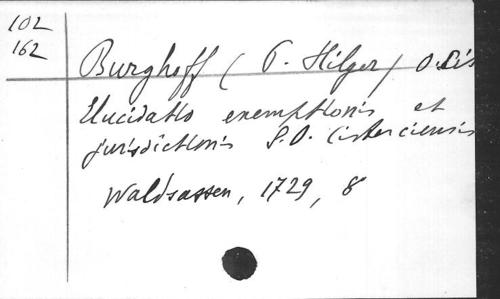 102
162
Burghoff (P. Hilger) O. Cis
Elucidatio exemptionis et
jurisdictionis S. O. Cisterciensis
Waldsassen, 1729, 8